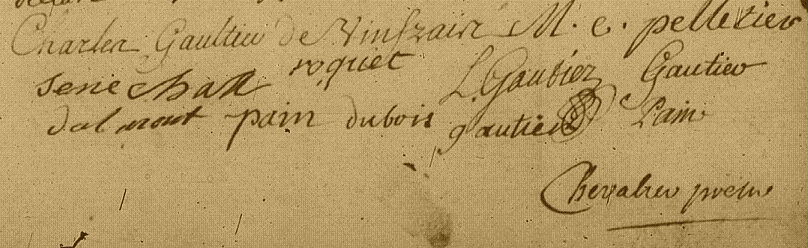 Charles Gaultier de Vinfrain M. e. pelletier
roquet L. Gautier Gautier
Senechall
dalmont pain dubois gautier Pain
Chevalier prestre